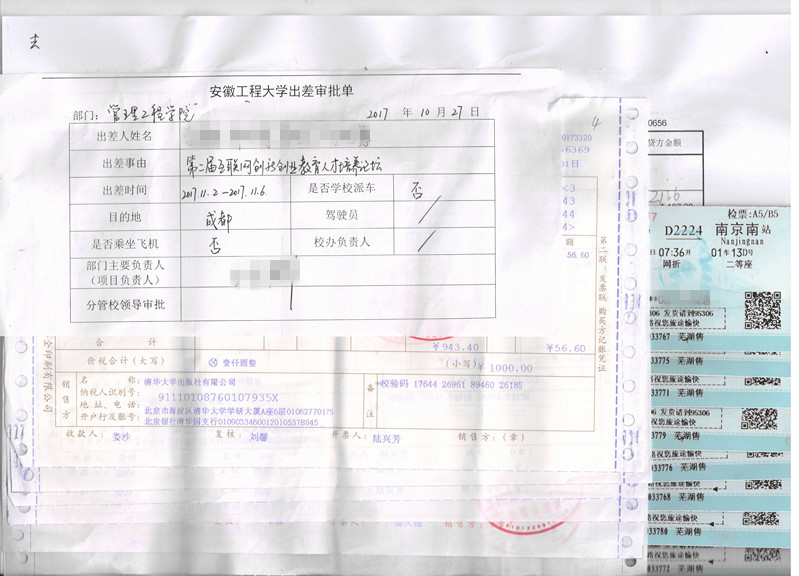 安徽工程大学出差审批单
部门：管理工程学院 2017 年 10 月 27 日
出差人姓名
出差事由 第二届互联网创新创业教育人才培养论坛
出差时间 2017.11.2—2017.11.6. 是否学校派车 否
目的地 成都 驾驶员 /
是否乘坐飞机 否 校办负责人 /
部门主要负责人
（项目负责人）
分管校领导审批
4
0173320
6369
01日
<3
43>
44
4>
额
56.60
第二联：发票联 购买方记账凭证
合 计 ¥943.40 ¥56.60
价税合计（大写） ⊗ 壹仟圆整 （小写） ¥ 1000.00
销售方
名 称：清华大学出版社有限公司
纳税人识别号：91110108760107935X
地址、电话：北京市海淀区清华大学学研大厦A座6层01062770175
开户行及账号：北京银行清华园支行01090334600120105378845
备注
校验码 17644 26961 89460 26185
收款人：娄沙 复核：刘馨 开票人：陆兴芳 销售方：（章）
0656
贷方金额
检票:A5/B5
D2224 南京南站
Nanjingnan
07:36开 01车13D号
网折 二等座
95306 发货请到95306
路祝您旅途愉快
33767 芜湖售
祝您旅途愉快
33775 芜湖售
祝您旅途愉快
33771 芜湖售
发货请到95306
祝您旅途愉快
33779 芜湖售
祝您旅途愉快
033776 芜湖售
祝您旅途愉快
033768 芜湖售
路祝您旅途愉快
033780 芜湖售
路祝您旅途愉快
033772 芜湖售